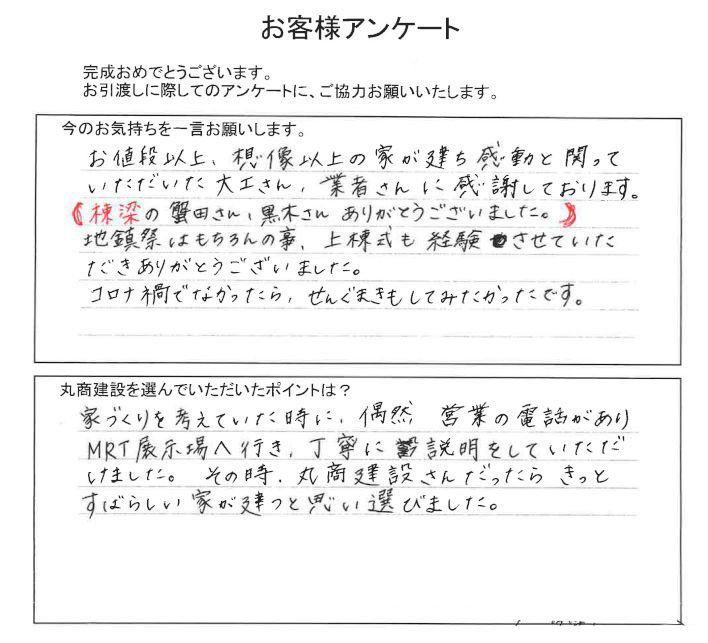 お客様アンケート
完成おめでとうございます。
お引渡しに際してのアンケートに、ご協力お願いいたします。
今のお気持ちを一言お願いします。
お値段以上、想像以上の家が建ち感動と関って
いただいた大工さん、業者さんに感謝しております。
(棟梁の蟹田さん、黒木さんありがとうございました。)
地鎮祭はもちろんの事、上棟式も経験させていた
だきありがとうございました。
コロナ禍でなかったら、せんぐまきもしてみたかったです。
丸商建設を選んでいただいたポイントは？
家づくりを考えていた時に、偶然 営業の電話があり
MRT展示場へ行き、丁寧に説明をしていただ
けました。その時、丸商建設さんだったらきっと
すばらしい家が建つと思い選びました。